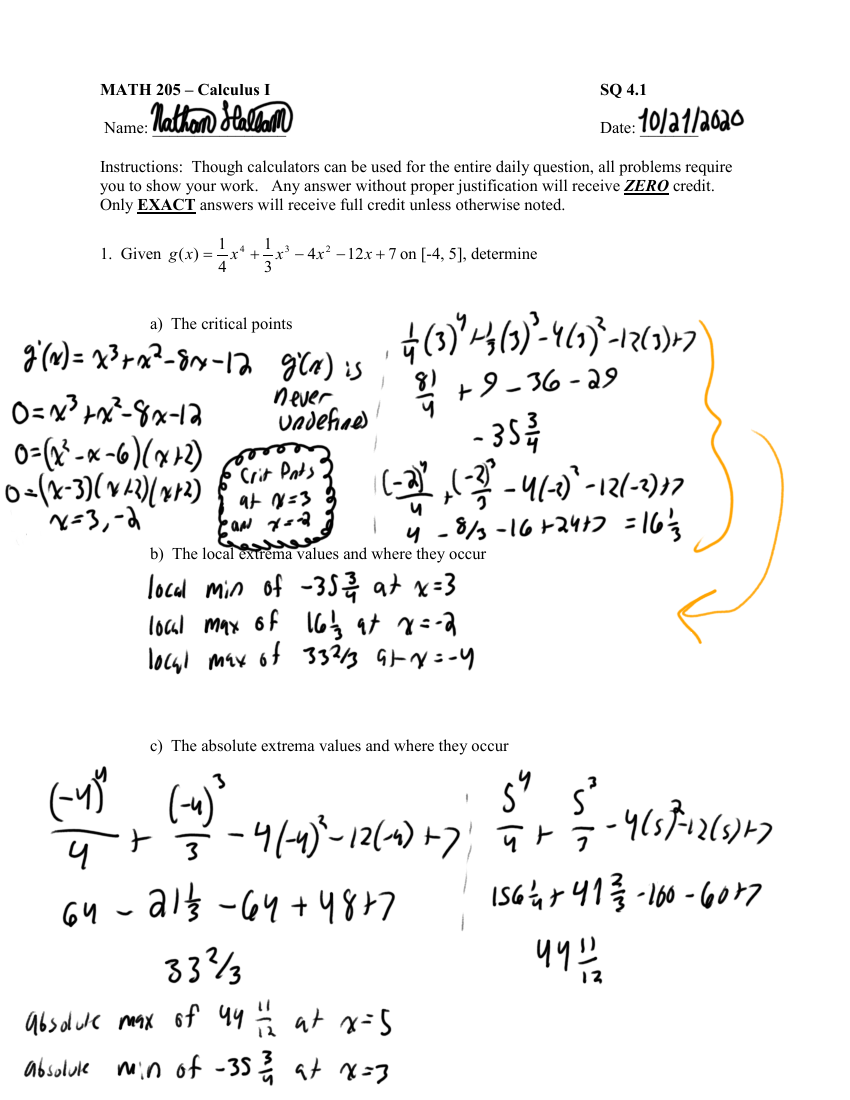 MATH 205 – Calculus I SQ 4.1
Name: Nathan Hallam Date: 10/21/2020
Instructions: Though calculators can be used for the entire daily question, all problems require
you to show your work. Any answer without proper justification will receive ZERO credit.
Only EXACT answers will receive full credit unless otherwise noted.
1. Given g(x) = 1/4 x⁴ + 1/3 x³ − 4x² − 12x + 7 on [-4, 5], determine
a) The critical points
g'(x) = x³+x²-8x-12
0=x³+x²-8x-12
0=(x²-x-6)(x+2)
0=(x-3)(x+2)(x+2)
x=3,-2
g'(x) is
never
undefined
Crit Pnts
at x=3
and x=-2
1/4(3)⁴+1/3(3)³-4(3)²-12(3)+7
81/4 + 9 - 36 - 29
-35 3/4
(-2)⁴/4 + (-2)³/3 - 4(-2)² - 12(-2)+7
4 - 8/3 - 16 + 24+7 = 16 1/3
b) The local extrema values and where they occur
local min of -35 3/4 at x=3
local max of 16 1/3 at x=-2
local max of 33 2/3 at x=-4
c) The absolute extrema values and where they occur
(-4)⁴/4 + (-4)³/3 - 4(-4)² - 12(-4) + 7
64 - 21 1/3 - 64 + 48+7
33 2/3
5⁴/4 + 5³/3 - 4(5)²-12(5)+7
156 1/4 + 41 2/3 -100 - 60+7
44 11/12
absolute max of 44 11/12 at x=5
absolute min of -35 3/4 at x=3